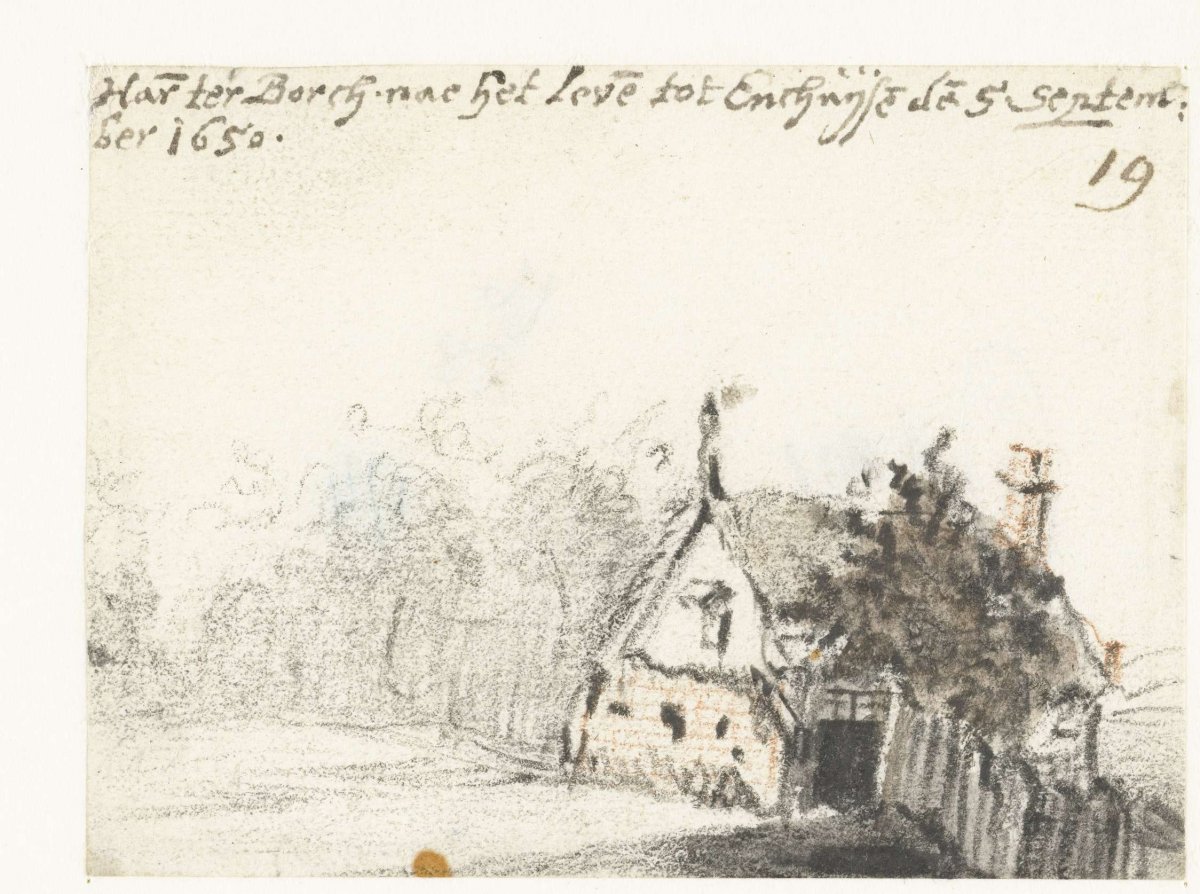 Har̄ ter Borch. nae het Levē tot Enchuÿse dē 5 Septem:
ber 1650.
19